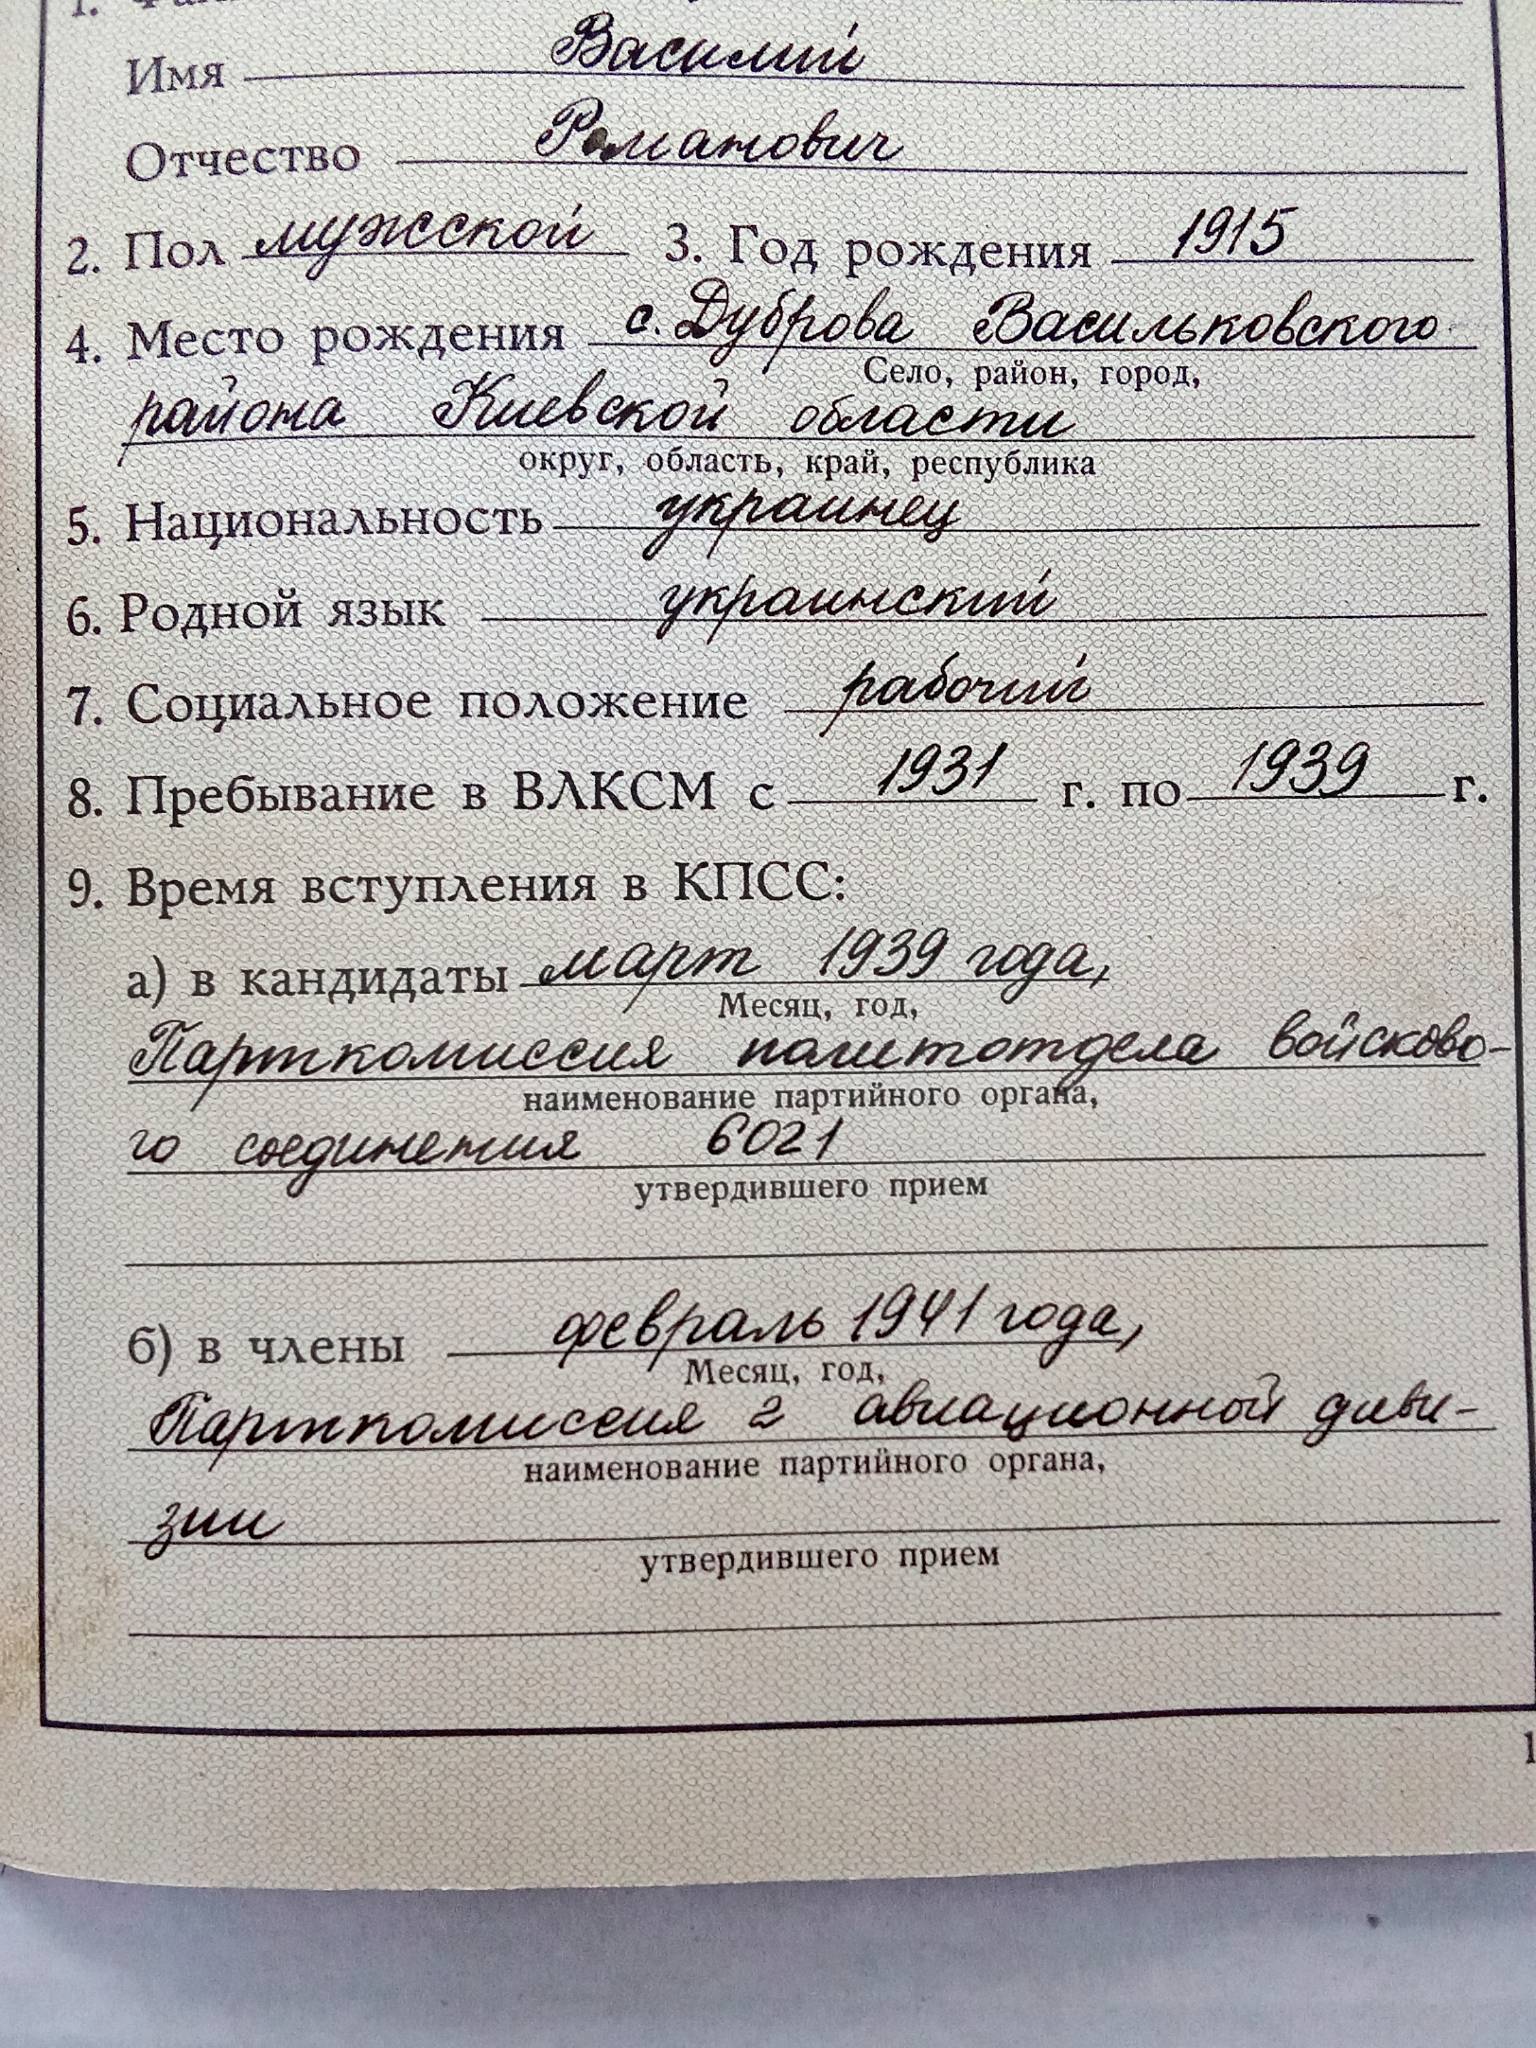 Имя Василий
Отчество Романович
2. Пол мужской 3. Год рождения 1915
4. Место рождения с. Дуброва Васильковского
Село, район, город,
района Киевской области
округ, область, край, республика
5. Национальность украинец
6. Родной язык украинский
7. Социальное положение рабочий
8. Пребывание в ВЛКСМ с 1931 г. по 1939 г.
9. Время вступления в КПСС:
а) в кандидаты март 1939 года,
Месяц, год,
Парткомиссия политотдела войсково-
наименование партийного органа,
го соединения 6021
утвердившего прием
б) в члены февраль 1941 года,
Месяц, год,
Парткомиссия 2 авиационной диви-
наименование партийного органа,
зии
утвердившего прием
1